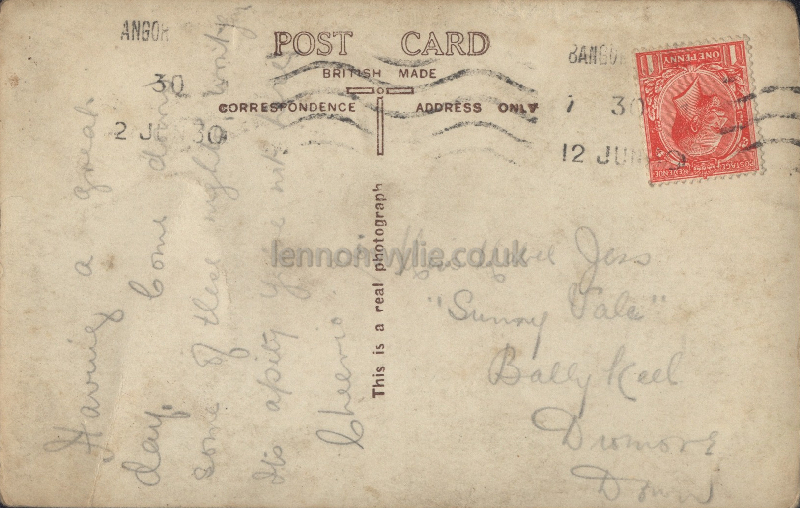 ANGOR
30
2 JU 30
POST CARD
BRITISH MADE
CORRESPONDENCE ADDRESS ONLY
BANGO
7 30
12 JUN
ONE PENNY
1 1
POSTAGE REVENUE
This is a real photograph
lennonwylie.co.uk
Having a great
day. Come down
some of these nights
Its a pity you not
Cheerio.
Jess
"Sunny Vale"
Bally Keel
Dromore
Down